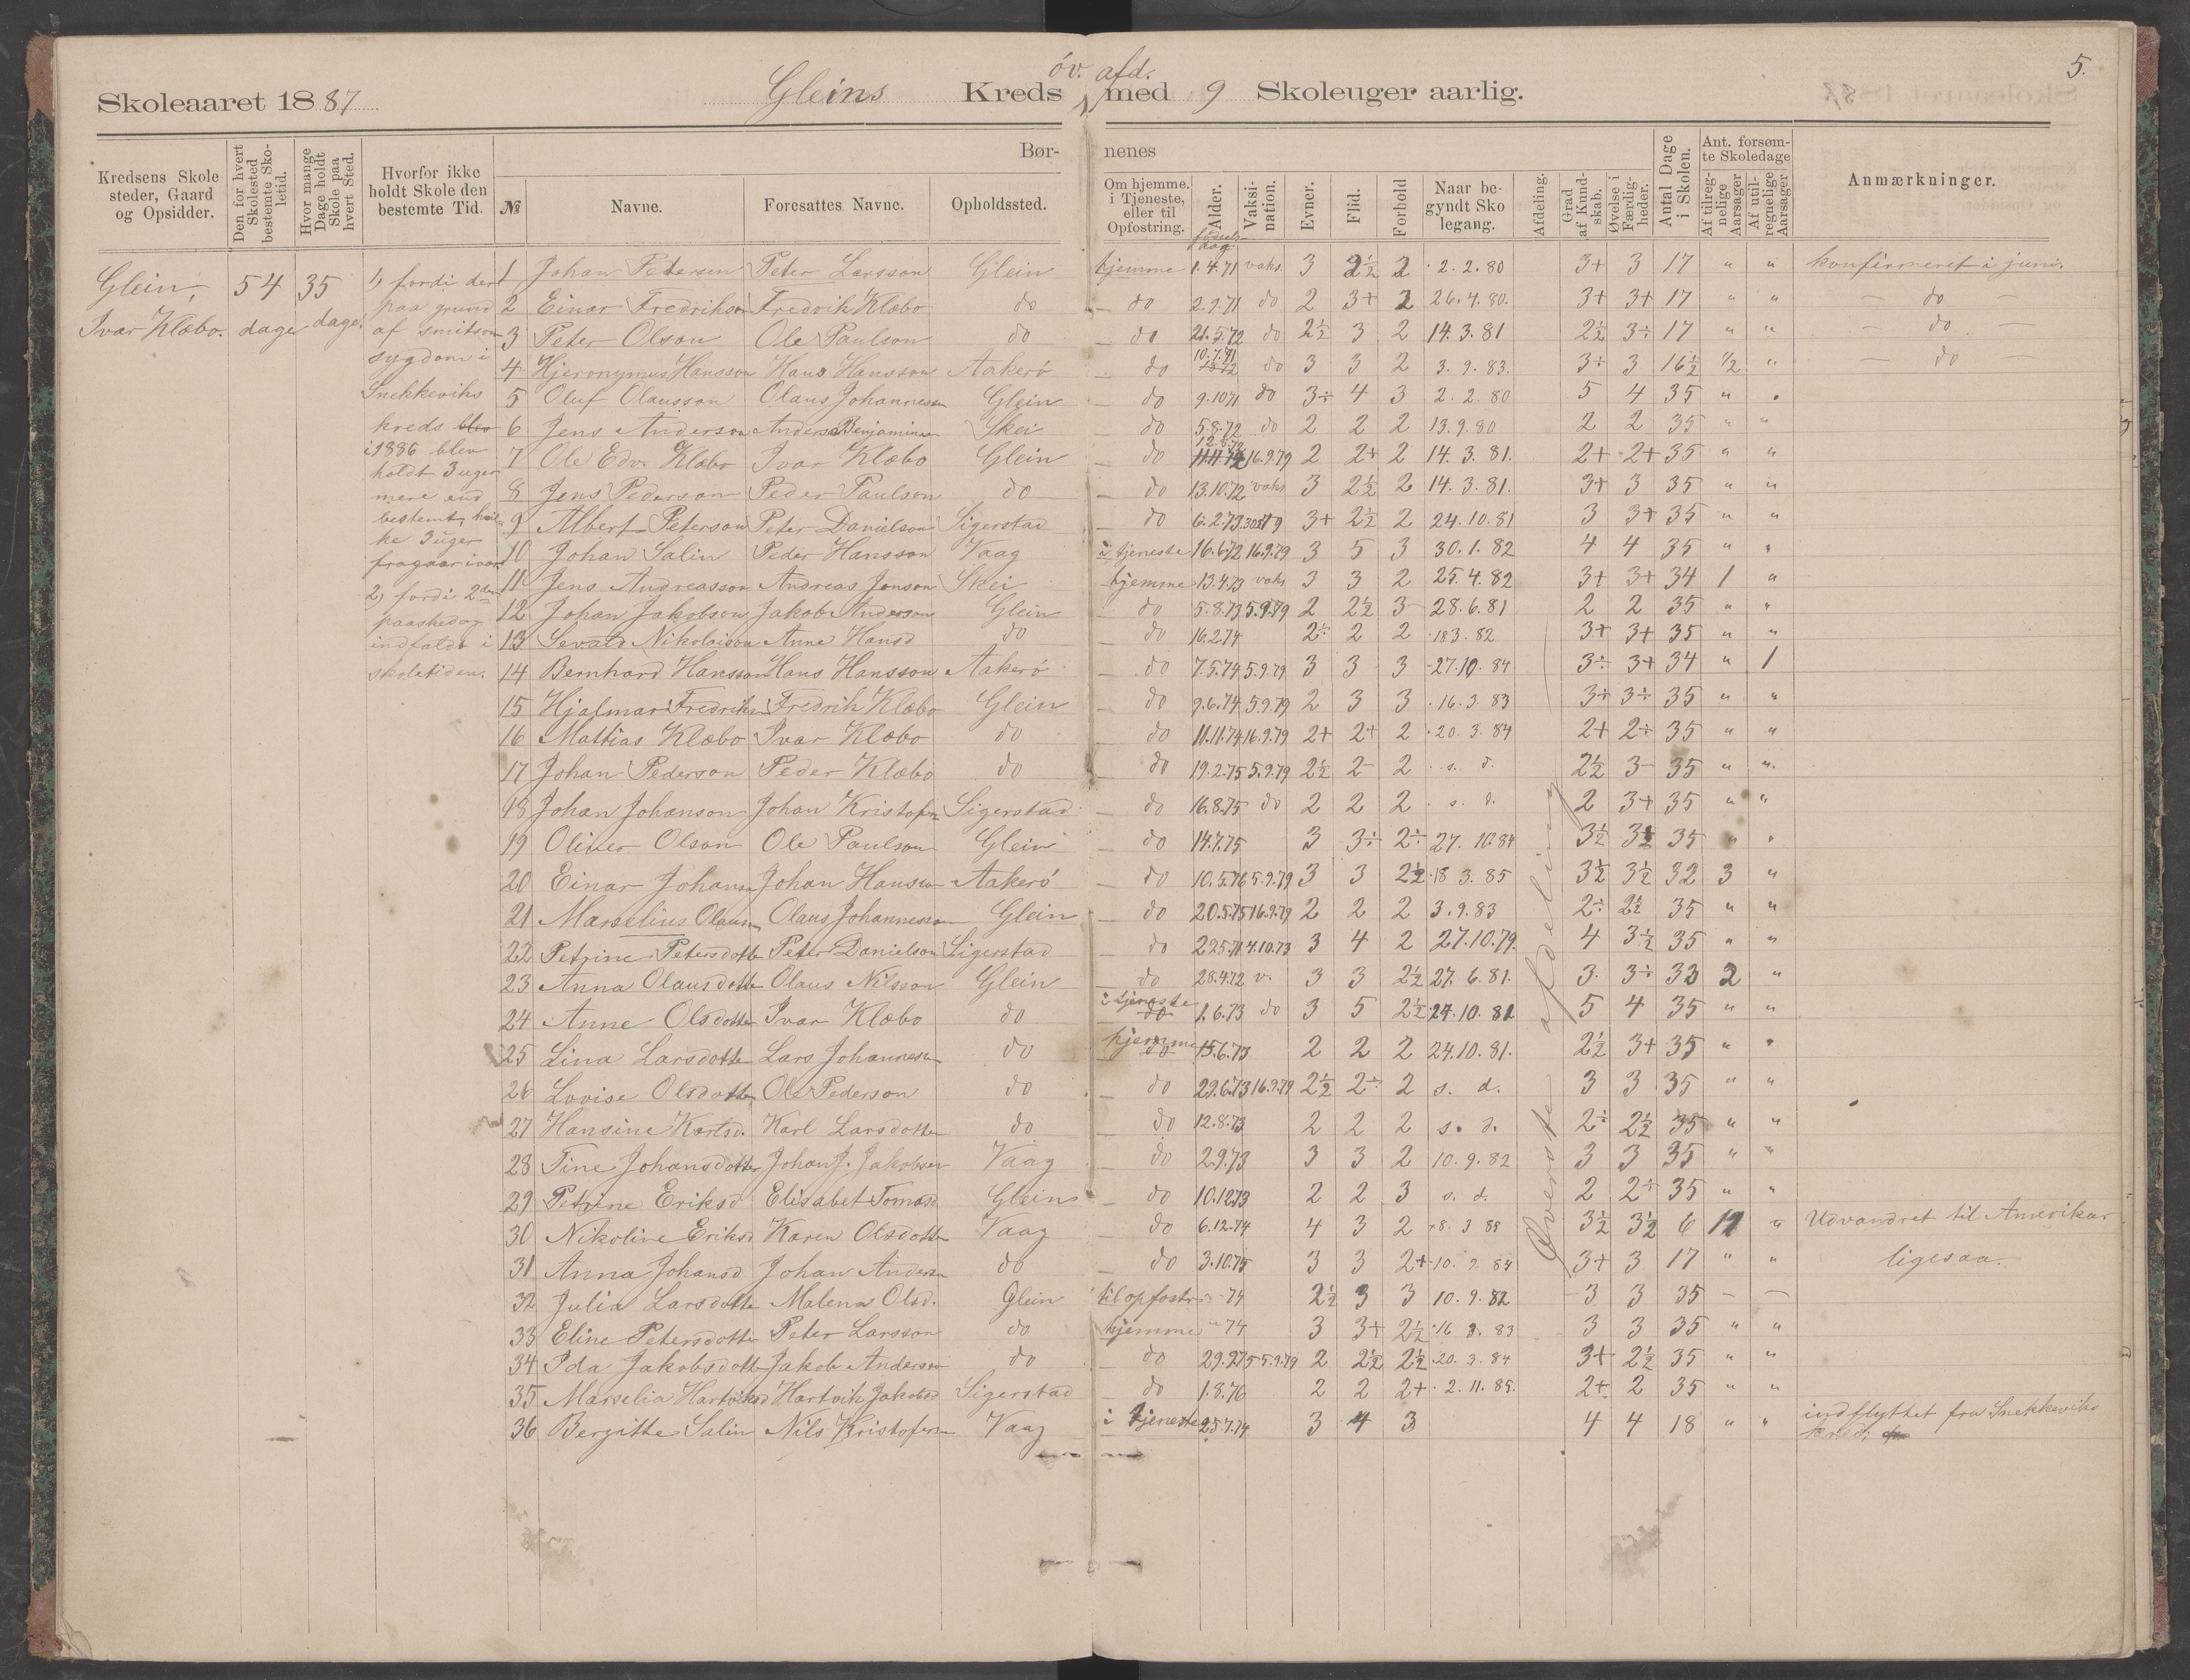 5.
öv. afd.
Skoleaaret 1887 Gleins Kreds med 9 Skoleuger aarlig.
Børnenes
Kredsens Skolesteder, Gaard og Opsidder.
Den for hvert Skolested bestemte Skoletid.
Hvor mange Dage holdt Skole paa hvert Sted.
Hvorfor ikke holdt Skole den bestemte Tid.
№ Navne. Foresattes Navne. Opholdssted.
Om hjemme, i Tjeneste, eller til Opfostring. Alder. Vaksination. Evner. Flid. Forhold Naar begyndt Skolegang. Afdeling. Grad af Kundskab. Øvelse i Færdigheder. Antal Dage i Skolen.
Ant. forsømte Skoledage
Af tilregnelige Aarsager Af utilregnelige Aarsager
Anmærkninger.
fødselsdag
Glein, 54 35
Ivar Klæbo. dage dage.
1, fordi der
paa grund
af smitsom
sygdom i
Snekkeviks
kreds blev
i 1886 blev
holdt 3 uger
mere end
bestemt, hvil-
ke 3 uger
fragaar ivaar
2, fordi 2den
paaskedag
indfaldt i
skoletiden.
Øverste afdeling
1 Johan Petersen Peter Larsson Glein hjemme 1.4.71 vaks. 3 2½ 2 2.2.80 3+ 3 17 " " konfirmeret i juni.
2 Einar Fredrikson Fredrik Klæbo do do 2.9.71 do 2 3+ 2 26.4.80. 3+ 3+ 17 " " do
3 Peter Olson Ole Paulson do do 21.5.72 do 2½ 3 2 14.3.81 2½ 3÷ 17 " " do
4 Hjeronymus Hansson Hans Hansson Aakerö do 10.7.71 do 3 3 2 3.9.83. 3÷ 3 16½ ½ " do
5 Oluf Olausson Olaus Johannessen Glein do 9.1071 do 3÷ 4 3 2.2.80 5 4 35 " "
6 Jens Anderson Anders Benjaminsen Skei do 5.8.72 do 2 2 2 13.9.80 2 2 35 " "
7 Ole Edv. Klæbo Ivar Klæbo Glein do 12.8.72 16.9.79 2 2+ 2 14.3.81. 2+ 2+ 35 " "
8 Jens Pederson Peder Paulson do do 13.10.72 vaks 3 2½ 2 14.3.81. 3+ 3 35 " "
9 Albert Peterson Peter Danielson Sigerstad do 6.2.73 3+ 2½ 2 24.10.81 3 3+ 35 " "
10 Johan Salin Peder Hansson Vaag i tjeneste 16.6.72 16.9.79 3 5 3 30.1.82 4 4 35 " "
11 Jens Andreasson Andreas Jonson Skei hjemme 13.4.73 vaks 3 3 2 25.4.82 3+ 3+ 34 1 "
12 Johan Jakobson Jakob Anderson Glein do 5.8.73 5.9.79 2 2½ 3 28.6.81 2 2 35 " "
13 Sevald Nikolaison Anne Hansd do do 16.2.74 2÷ 2 2 183.82 3+ 3+ 35 " "
14 Bernhard Hansson Hans Hansson Aakerö do 7.5.74 5.9.79 3 3 3 27.10.84 3÷ 3+ 34 " 1
15 Hjalmar Fredriksen Fredrik Klæbo Glein do 9.6.74 5.9.79 2 3 3 16.3.83 3÷ 3÷ 35 " "
16 Mattias Klæbo Ivar Klæbo do do 11.11.74 16.9.79 2+ 2+ 2 20.3.84 2+ 2÷ 35 " "
17 Johan Pederson Peder Klæbo do do 19.2.75 5.9.79 2½ 2 2 s. d. 2½ 3 35 " "
18 Johan Johanson Johan Kristofersen Sigerstad do 16.8.75 do 2 2 2 s. d. 2 3+ 35 " "
19 Oliver Olson Ole Paulson Glein do 14.7.75 3 3÷ 2÷ 27.10.84 3½ 3½ 35 " "
20 Einar Johansen Johan Hansson Aakerö do 10.5.76 5.9.79 3 3 2½ 18 3.85 3½ 3½ 32 3 "
21 Marselius Olausen Olaus Johannessen Glein do 20.5.75 16.9.79 2 2 2 3.9.83 2÷ 2½ 35 " "
22 Petrine Petersdotter Peter Danielson Sigerstad do 225.71 4.10.73 3 4 2 27.10.79. 4 3½ 35 " "
23 Anna Olausdotter Olaus Nilsson Glein do 28.4.72 v. 3 3 2½ 27.6.81. 3 3÷ 33 2 "
24 Anne Olsdotter Ivar Klæbo do i tjeneste 1.6.73 do 3 5 2½ 24.10.81 5 4 35 " "
25 Lina Larsdotter Lars Johannessen do hjemme 15.6.73 2 2 2 24.10.81. 2½ 3+ 35 " "
26 Lovise Olsdotter Ole Pederson do do 29.6.73 16.9.79 2½ 2÷ 2 s. d. 3 3 35 " "
27 Hansine Karlsd. Karl Larsdotter do do 12.8.73 2 2 2 s. d. 2÷ 2½ 35 " "
28 Tine Johansdotter Johan J. Jakobsen Vaag do 2.9.73 3 3 2 10.9.82 3 3 35 " "
29 Petrine Eriksd Elisabet Tomasd Glein do 10.12.73 2 2 3 s. d. 2 2÷ 35 " "
30 Nikoline Eriksd Karen Olsdotter Vaag do 6.12.74 4 3 2 8.3 85 3½ 3½ 6 12 " Udvandret til Amerika
31 Anna Johansd Johan Andersen do do 3.10.75 3 3 2+ 10.9.84 3+ 3 17 " " ligesaa.
32 Julia Larsdotter Malena Olsd. Glein til opfostr - 74 2½ 3 3 10.9.82 3 3 35 — —
33 Eline Petersdotter Peter Larsson do hjemme " 74 3 3+ 2½ 16 3.83 3 3 35 " "
34 Ida Jakobsdotter Jakob Anderson do do 29.9.75 5.9.79 2 2½ 2½ 20.3.84 3+ 2½ 35 " "
35 Marselia Hartviksd Hartvik Jakobsd Sigerstad do 1.8.76 2 2 2+ 2.11.85. 2+ 2 35 " "
36 Bergitte Salin Nils Kristofersen Vaag i tjeneste 25.7.74 3 4 3 4 4 18 " " indflyttet fra Snekkeviks
kreds